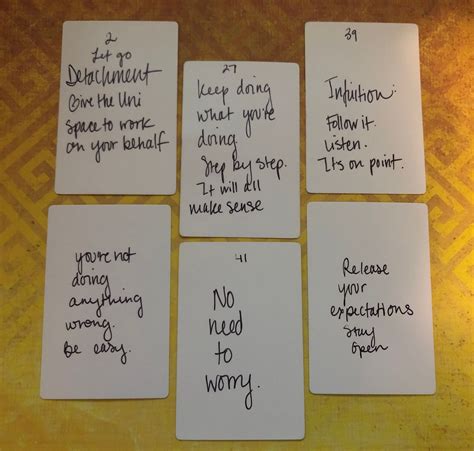 2
Let go
Detachment
Give the Uni
space to work
on your behalf
27
Keep doing
what you're
doing
Step by step.
It will all
make sense
39
Intuition:
Follow it.
Listen.
Its on point.
you're not
doing
anything
wrong.
Be easy.
41
No
need
to
worry.
Release
your
expectations
Stay
open